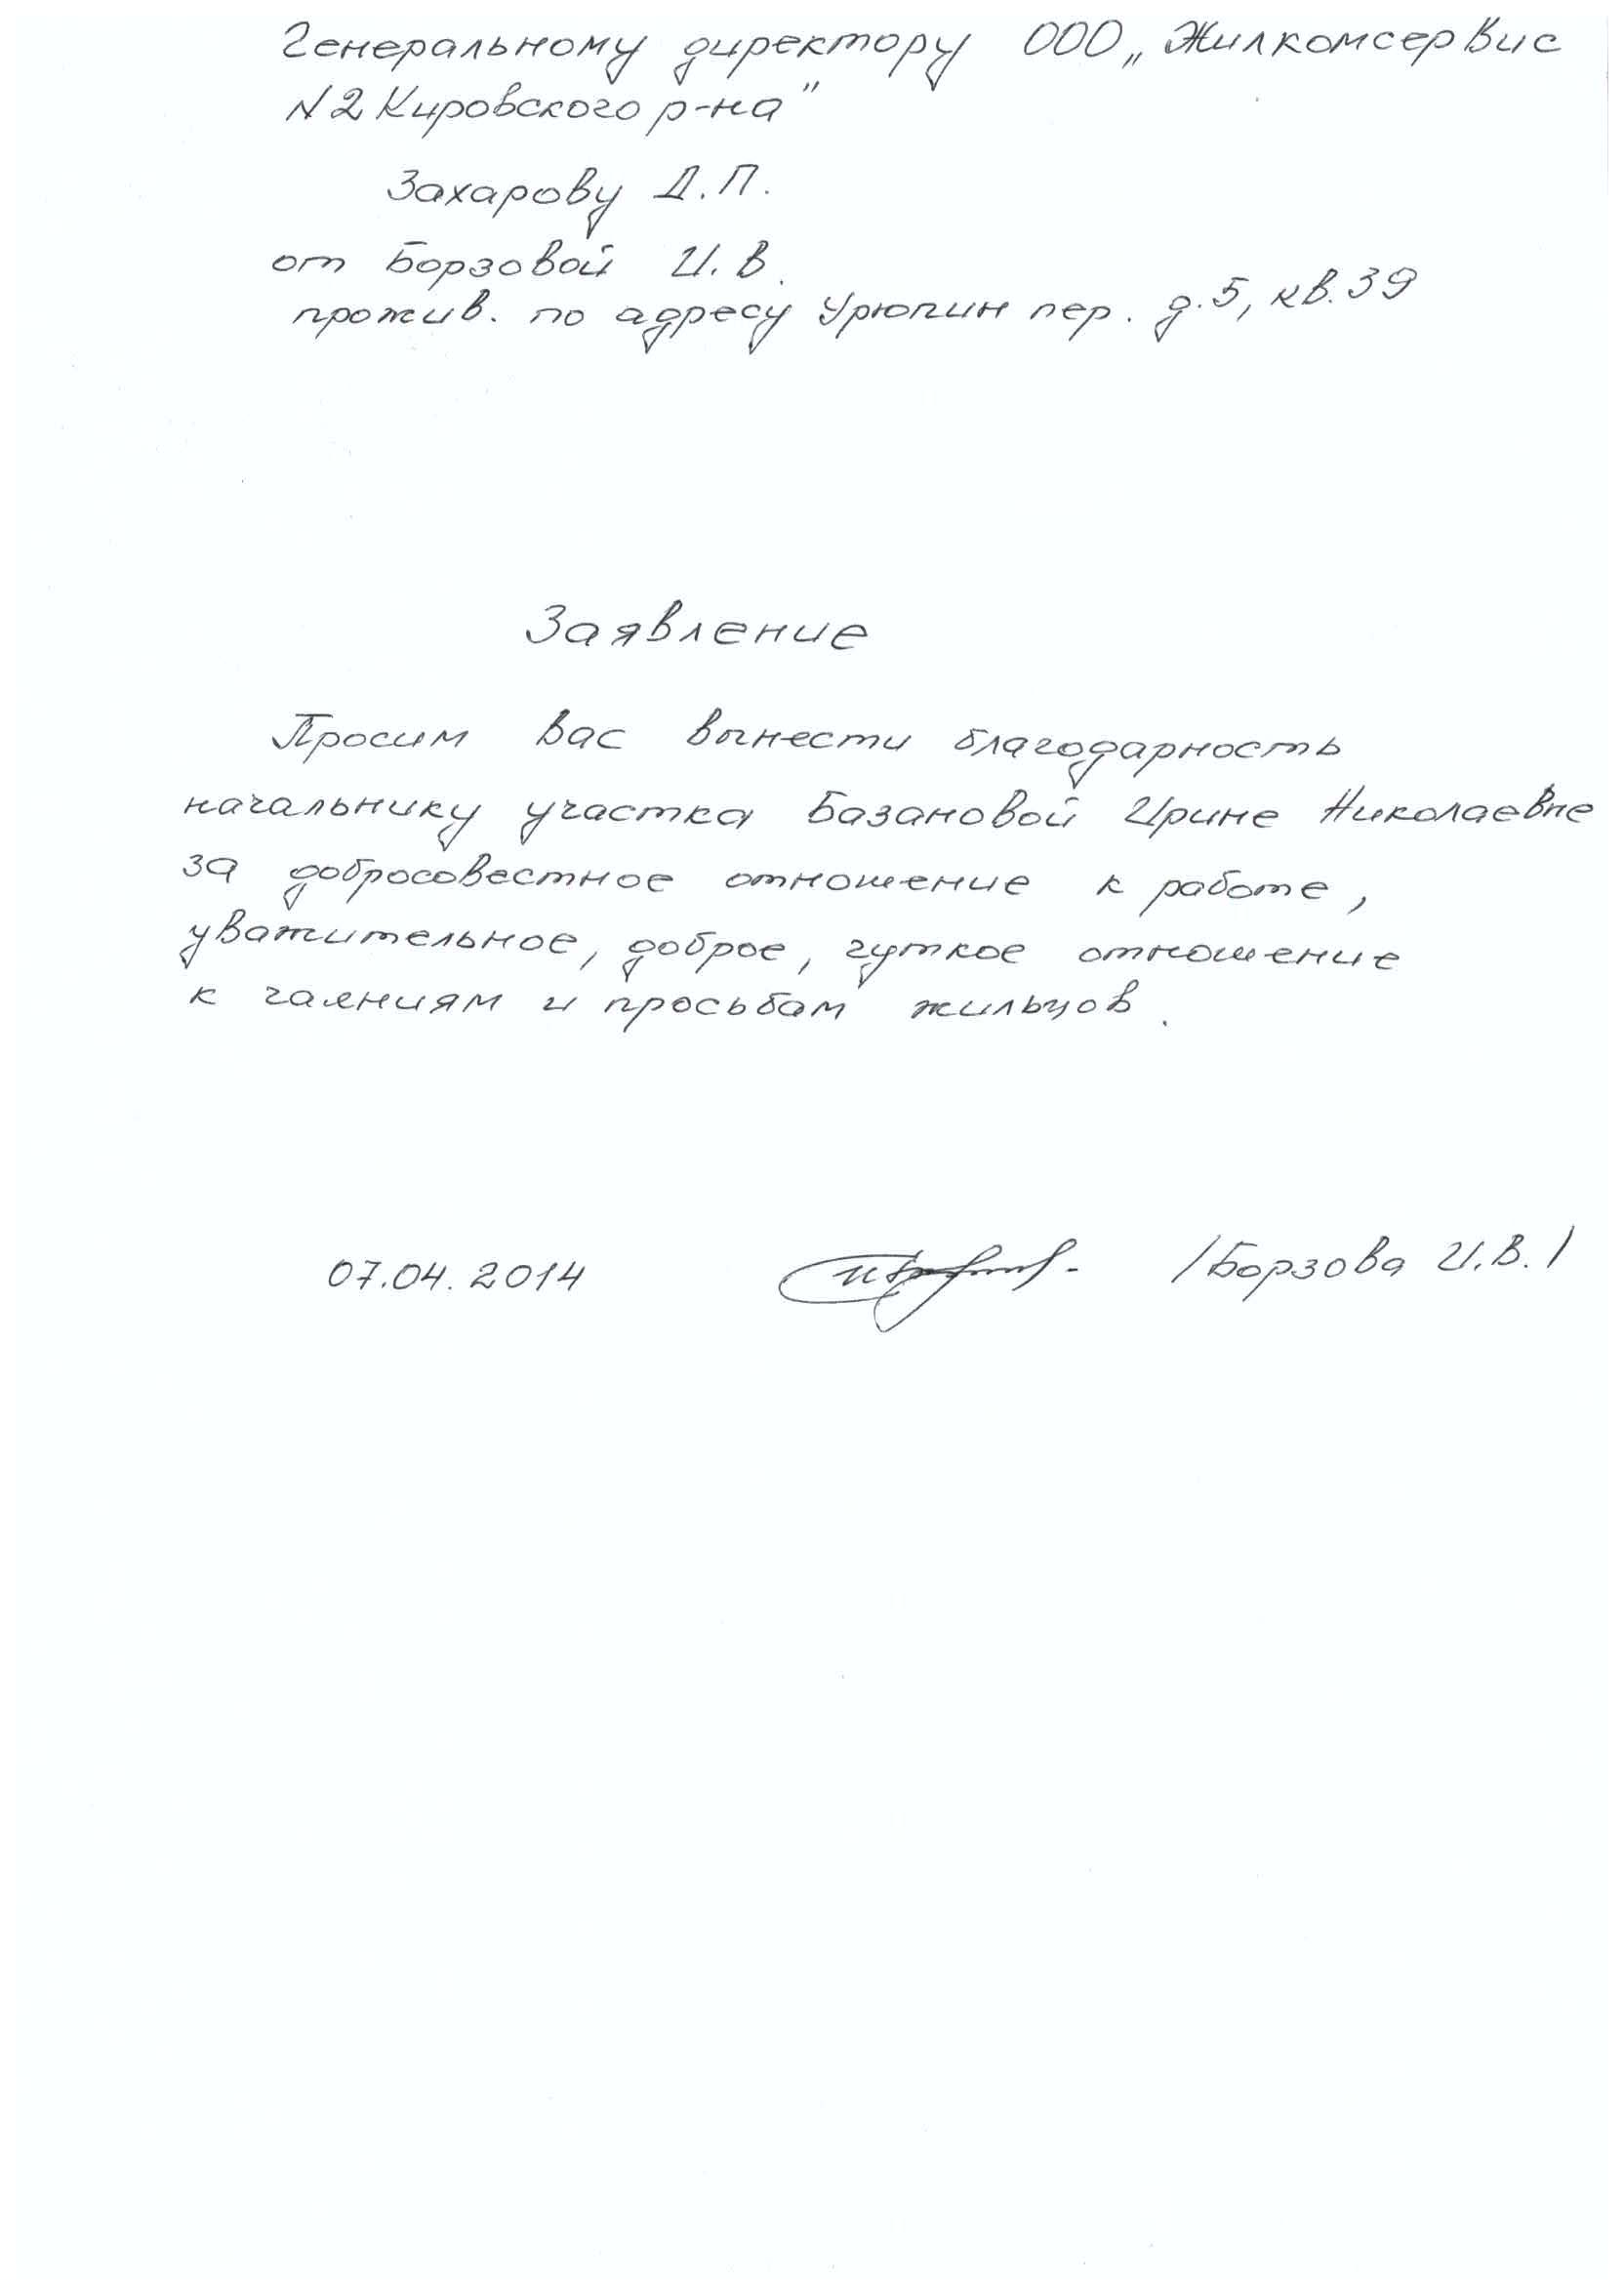 Генеральному директору ООО „Жилкомсервис
N2 Кировского р-на”
Захарову Д.П.
от Борзовой И.В.
прожив. по адресу Урюпин пер. д.5, кв.39
Заявление
Просим вас вынести благодарность
начальнику участка Базановой Ирине Николаевне
за добросовестное отношение к работе,
уважительное, доброе, чуткое отношение
к чаяниям и просьбам жильцов.
07.04.2014 /Борзова И.В./